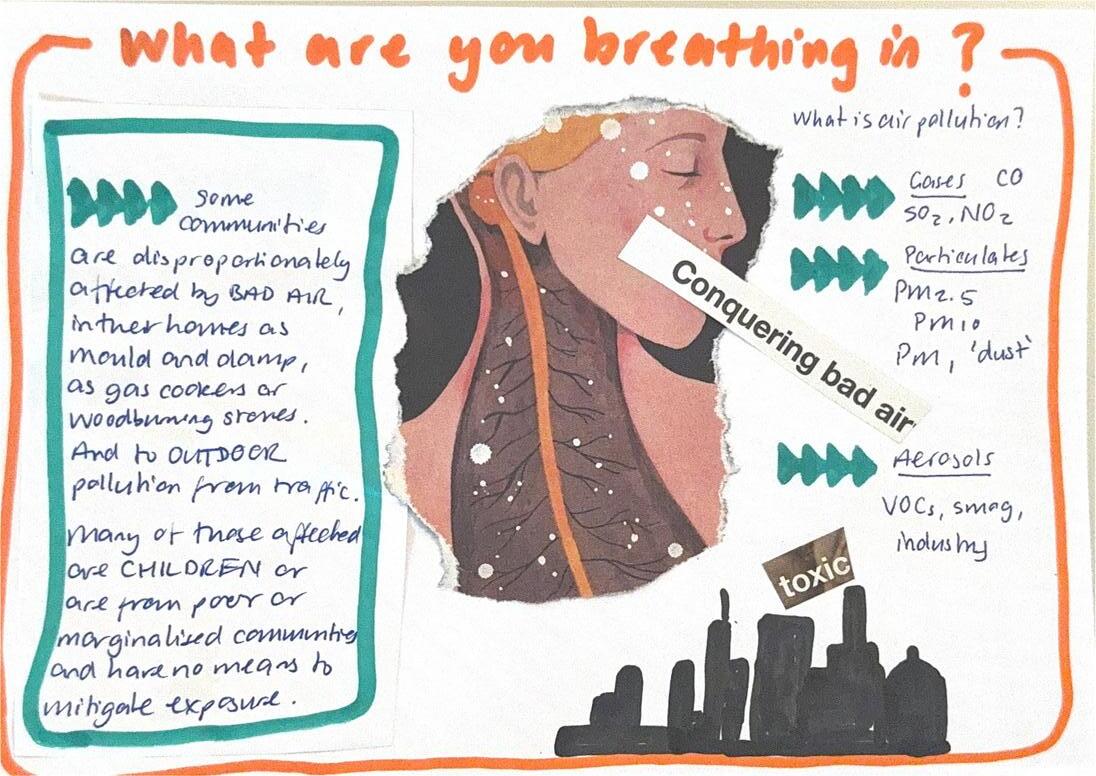 What are you breathing in?
some
communities
are disproportionately
affected by BAD AIR,
in their homes as
mould and damp,
as gas cookers or
woodburning stoves.
And to OUTDOOR
pollution from traffic.
Many of those affected
are CHILDREN or
are from poor or
marginalised communities
and have no means to
mitigate exposure.
Conquering bad air
What is air pollution?
Gases CO
SO₂, NO₂
Particulates
PM2.5
PM10
PM, 'dust'
Aerosols
VOCs, smog,
industry
toxic